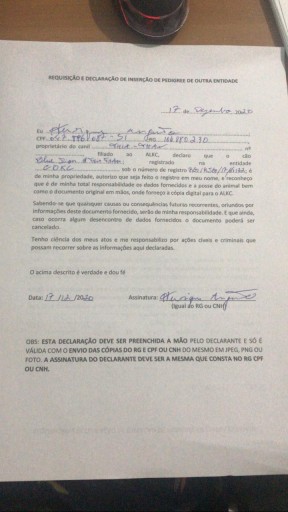 REQUISIÇÃO E DECLARAÇÃO DE INSERÇÃO DE PEDIGREE DE OUTRA ENTIDADE
17 de Dezembro 2020
Eu
CPF
proprietário do canil
filiado ao ALKC, declaro que o cão
registrado na entidade
sob o número de registro
de minha propriedade, autorizo que seja feito o registro em meu nome, e reconheço
que é de minha total responsabilidade os dados fornecidos e a posse do animal bem
como o documento original em mãos, onde forneço a cópia digital para o ALKC.
Sabendo-se que quaisquer causas ou consequências futuras recorrentes, oriundos por
informações deste documento fornecido, serão de minha responsabilidade. E que ainda,
caso ocorra algum desencontro de dados fornecidos o documento poderá ser
cancelado.
Tenho ciência dos meus atos e me responsabilizo por ações cíveis e criminoso que
possam recorrer sobre as informações aqui declaradas.
O acima descrito é verdade e dou fé
Data: 17/12/2020 Assinatura:
(Igual do RG ou CNH)
OBS: ESTA DECLARAÇÃO DEVE SER PREENCHIDA A MÃO PELO DECLARANTE E SÓ É
VÁLIDA COM O ENVIO DAS CÓPIAS DO RG E CPF OU CNH DO MESMO EM JPEG, PNG OU
FOTO. A ASSINATURA DO DECLARANTE DEVE SER A MESMA QUE CONSTA NO RG CPF
OU CNH.